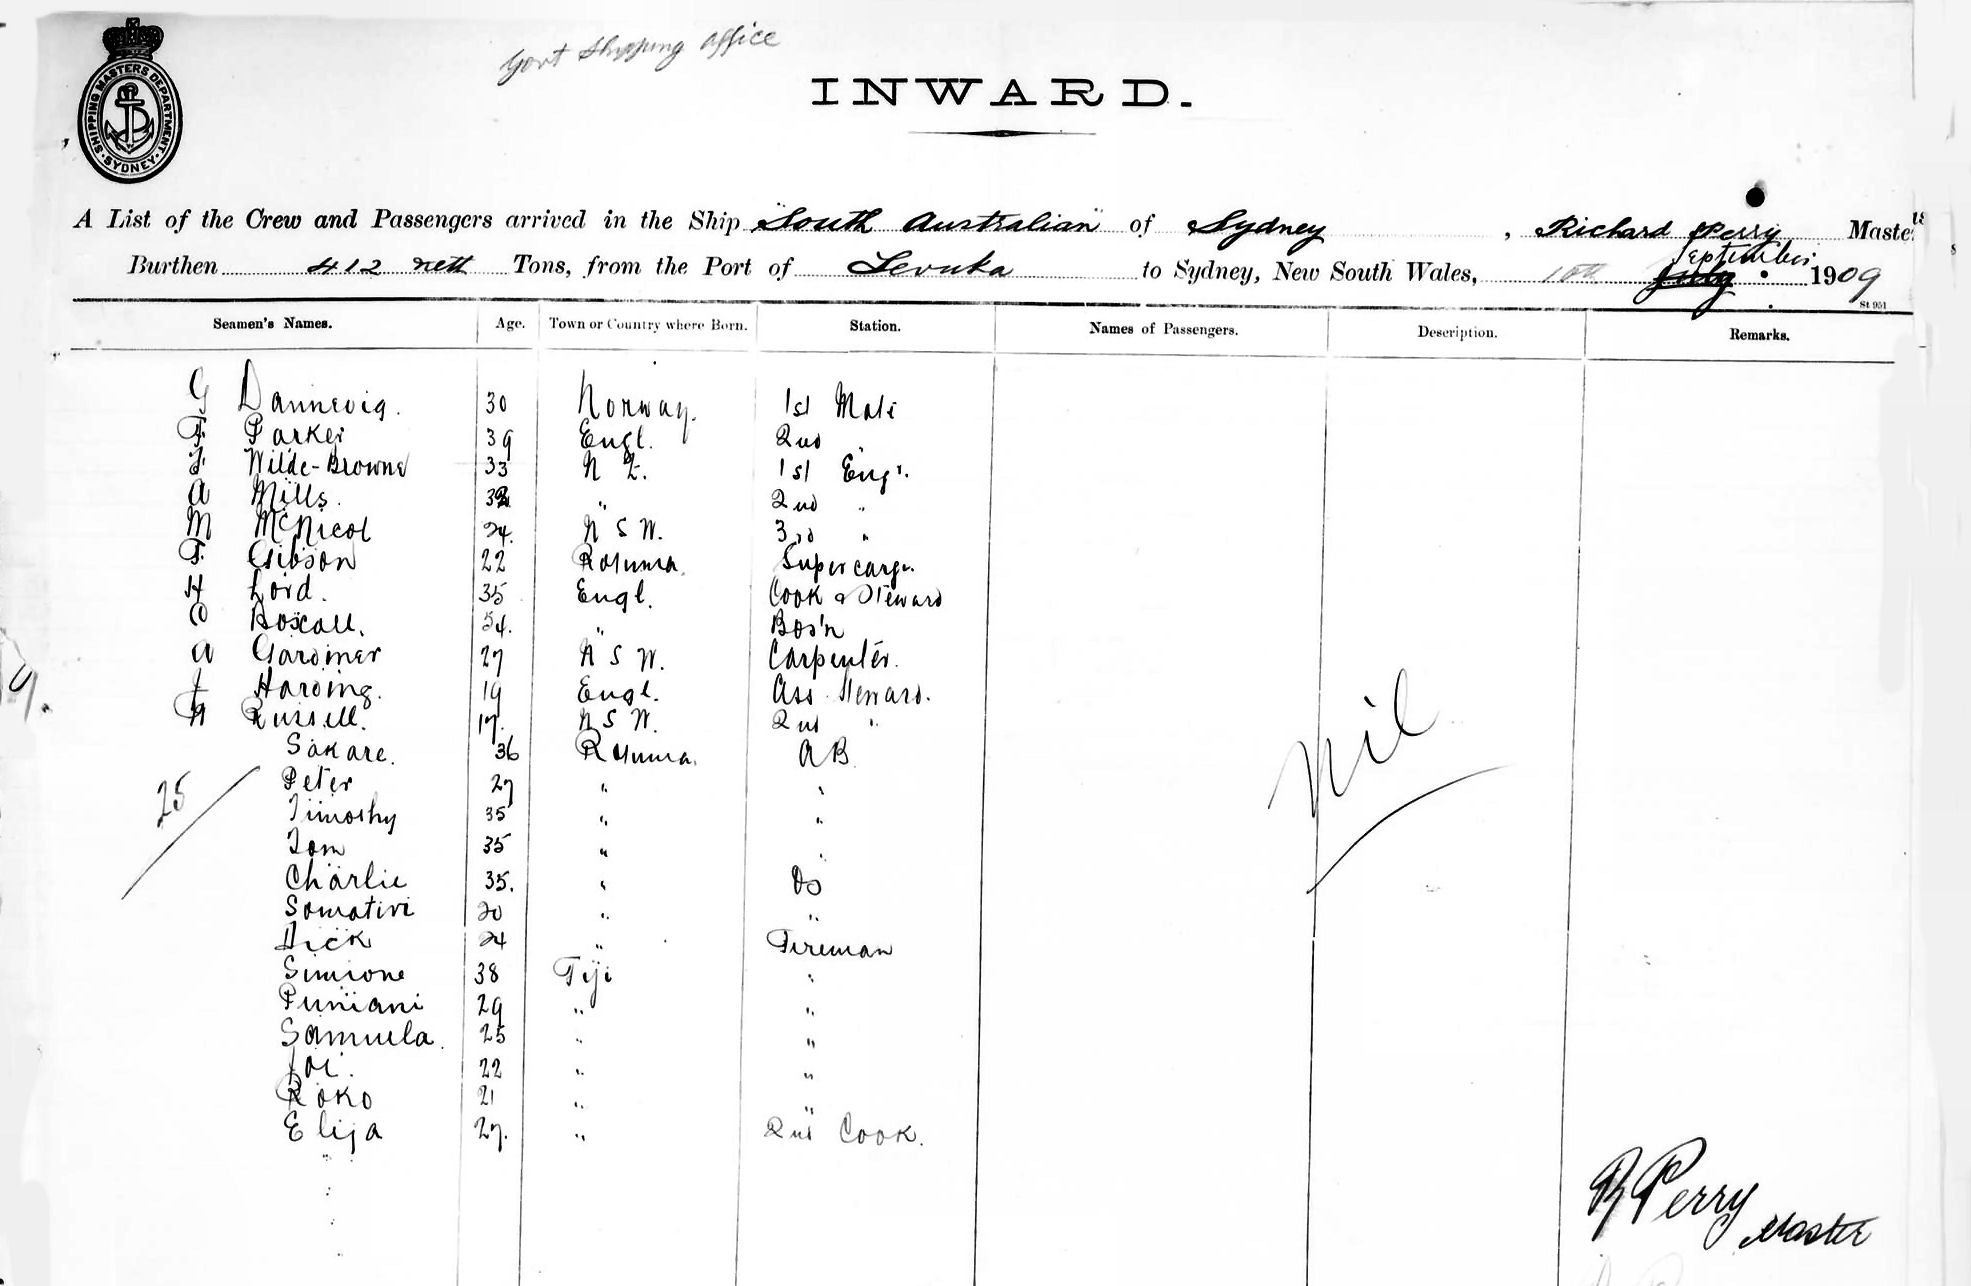 Govt Shipping Office
SHIPPING MASTERS DEPARTMENT
SYDNEY
INWARD.
A List of the Crew and Passengers arrived in the Ship "South Australian" of Sydney, Richard Perry Master
Burthen 412 nett Tons, from the Port of Levuka to Sydney, New South Wales, 10th July September 1909
St 951
Seamen's Names. Age. Town or Country where Born. Station. Names of Passengers. Description. Remarks.
G Dannevig. 30 Norway. 1st Mate
F. Parker 39 Engl. 2nd "
F. Wilde-Browne 33 N Z. 1st Engr.
A Mills. 32 " 2nd "
M McNicol 24. N S W. 3rd "
F. Gibson 22 Rotuma. Supercargo.
H Lord. 35 Engl. Cook & Steward
Boxall. 54. " Bos'n
A Gardiner 27 N S W. Carpenter.
J Harding. 19 Engl. Ass Steward.
H Russell. 17. N S W. 2nd "
Sakare. 36 Rotuma. AB
Peter 27 " "
Timothy 35 " "
Tom 35 " "
Charlie 35. " OS
Somativi 20 " "
Dick 24 " Fireman
Simione 38 Fiji "
Puniani 29 " "
Samuela. 25 " "
Joe. 22 " "
Roko 21 " "
Elija 27. " 2nd Cook.
25
Nil
R Perry
Master